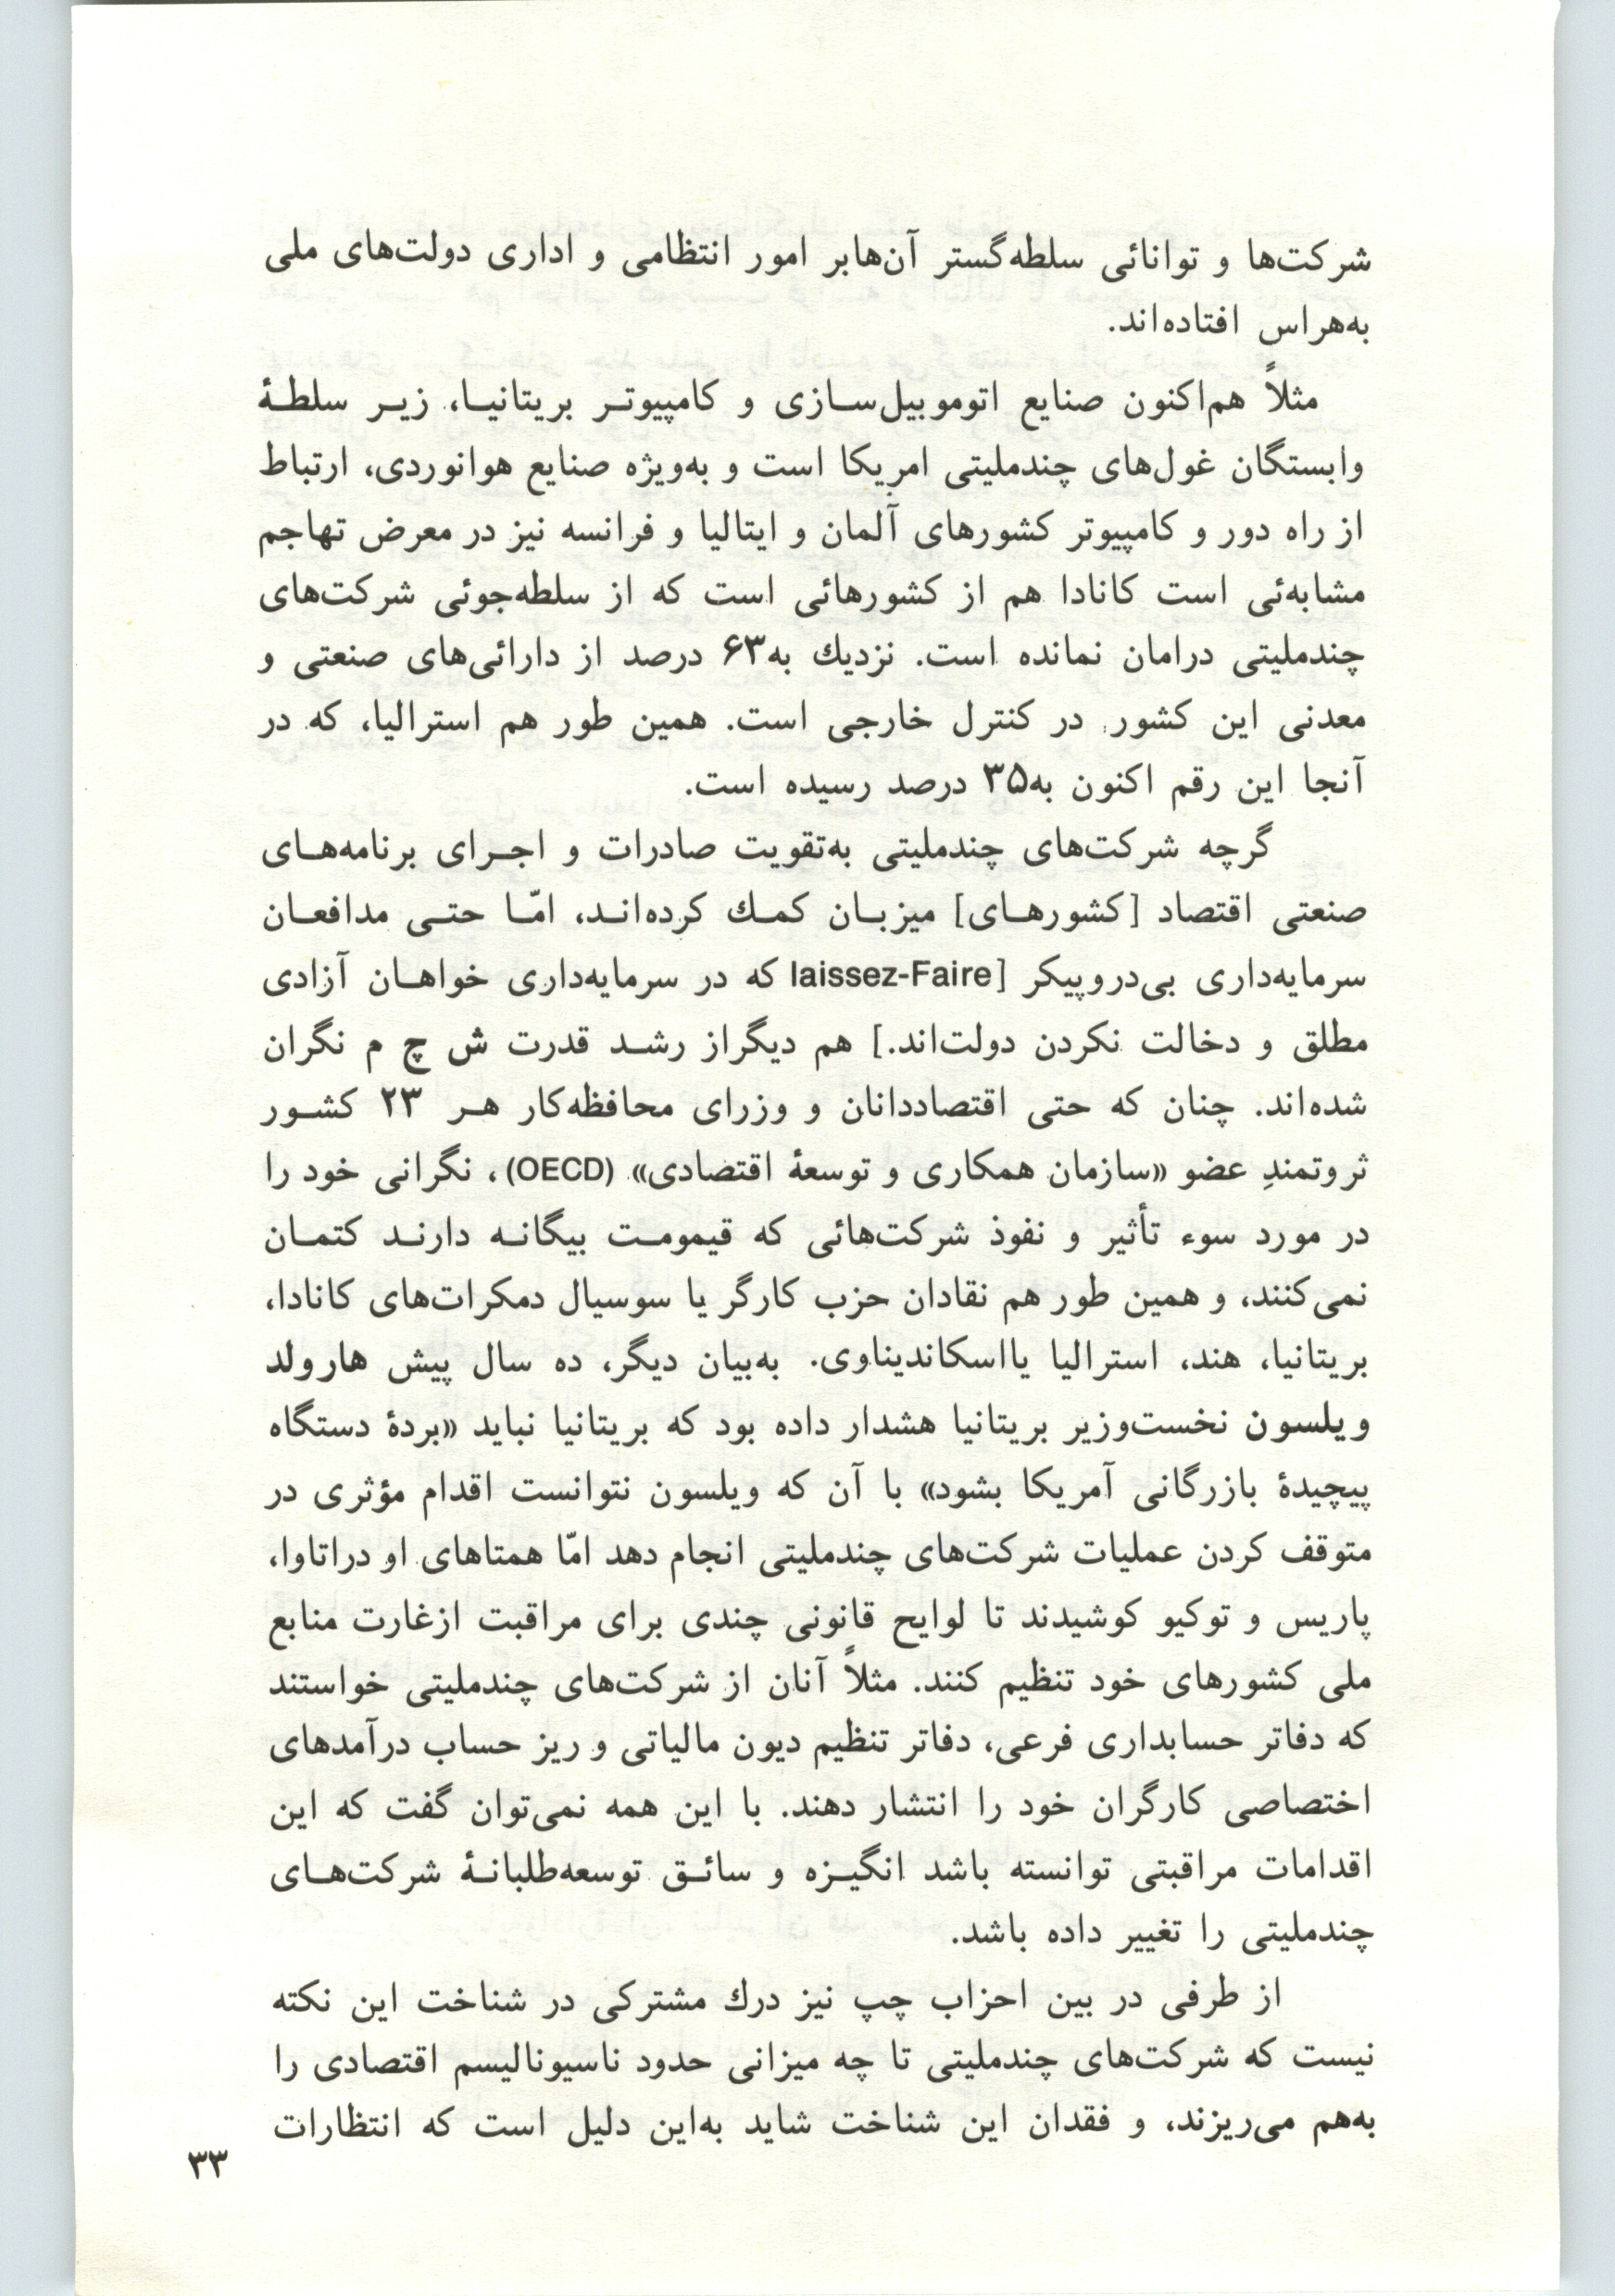 شرکت‌ها و توانائی سلطه‌گستر آن‌هابر امور انتظامی و اداری دولت‌های ملی
به‌هراس افتاده‌اند.
مثلاً هم‌اکنون صنایع اتوموبیل‌سازی و کامپیوتر بریتانیا، زیر سلطهٔ
وابستگان غول‌های چندملیتی امریکا است و به‌ویژه صنایع هوانوردی، ارتباط
از راه دور و کامپیوتر کشورهای آلمان و ایتالیا و فرانسه نیز در معرض تهاجم
مشابه‌ئی است کانادا هم از کشورهائی است که از سلطه‌جوئی شرکت‌های
چندملیتی درامان نمانده است. نزدیك به۶۳ درصد از دارائی‌های صنعتی و
معدنی این کشور در کنترل خارجی است. همین طور هم استرالیا، که در
آنجا این رقم اکنون به۳۵ درصد رسیده است.
گرچه شرکت‌های چندملیتی به‌تقویت صادرات و اجرای برنامه‌های
صنعتی اقتصاد [کشورهای] میزبان کمك کرده‌اند، امّا حتی مدافعان
سرمایه‌داری بی‌دروپیکر [laissez-Faire که در سرمایه‌داری خواهان آزادی
مطلق و دخالت نکردن دولت‌اند.] هم دیگراز رشد قدرت ش چ م نگران
شده‌اند. چنان که حتی اقتصاددانان و وزرای محافظه‌کار هر ۲۳ کشور
ثروتمندِ عضو «سازمان همکاری و توسعهٔ اقتصادی» (OECD)، نگرانی خود را
در مورد سوء تأثیر و نفوذ شرکت‌هائی که قیمومت بیگانه دارند کتمان
نمی‌کنند، و همین طور هم نقادان حزب کارگر یا سوسیال دمکرات‌های کانادا،
بریتانیا، هند، استرالیا یااسکاندیناوی. به‌بیان دیگر، ده سال پیش هارولد
ویلسون نخست‌وزیر بریتانیا هشدار داده بود که بریتانیا نباید «بردهٔ دستگاه
پیچیدهٔ بازرگانی آمریکا بشود» با آن که ویلسون نتوانست اقدام مؤثری در
متوقف کردن عملیات شرکت‌های چندملیتی انجام دهد امّا همتاهای او دراتاوا،
پاریس و توکیو کوشیدند تا لوایح قانونی چندی برای مراقبت ازغارت منابع
ملی کشورهای خود تنظیم کنند. مثلاً آنان از شرکت‌های چندملیتی خواستند
که دفاتر حسابداری فرعی، دفاتر تنظیم دیون مالیاتی و ریز حساب درآمدهای
اختصاصی کارگران خود را انتشار دهند. با این همه نمی‌توان گفت که این
اقدامات مراقبتی توانسته باشد انگیزه و سائق توسعه‌طلبانهٔ شرکت‌های
چندملیتی را تغییر داده باشد.
از طرفی در بین احزاب چپ نیز درك مشترکی در شناخت این نکته
نیست که شرکت‌های چندملیتی تا چه میزانی حدود ناسیونالیسم اقتصادی را
به‌هم می‌ریزند، و فقدان این شناخت شاید به‌این دلیل است که انتظارات
۳۳